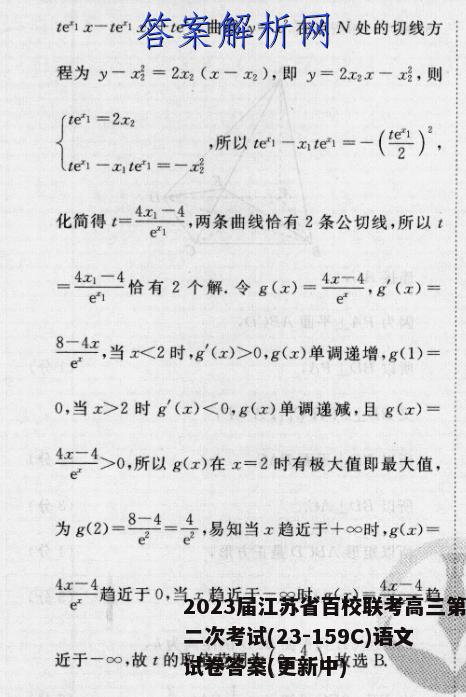 te^{x₁}x－te^{x₁} 曲 在 N 处的切线方
答案解析网
程为 y－x₂²＝2x₂(x－x₂),即 y＝2x₂x－x₂²,则
{te^{x₁}＝2x₂
te^{x₁}－x₁te^{x₁}＝－x₂² ,所以 te^{x₁}－x₁te^{x₁}＝－(te^{x₁}/2)²,
化简得 t＝(4x₁－4)/e^{x₁},两条曲线恰有 2 条公切线,所以 t
＝(4x₁－4)/e^{x₁}恰有 2 个解.令 g(x)＝(4x－4)/e^x,g′(x)＝
(8－4x)/e^x,当 x<2 时,g′(x)>0,g(x)单调递增,g(1)＝
0,当 x>2 时 g′(x)<0,g(x)单调递减,且 g(x)＝
(4x－4)/e^x>0,所以 g(x)在 x＝2 时有极大值即最大值,
为 g(2)＝(8－4)/e²＝4/e²,易知当 x 趋近于＋∞时,g(x)＝
(4x－4)/e^x趋近于 0,当 x 趋近于－∞时,g(x)＝(4x－4)/e^x趋
2023届江苏省百校联考高三第
二次考试(23-159C)语文
近于－∞,故 t 的取值范围为 故选 B.
试卷答案(更新中)